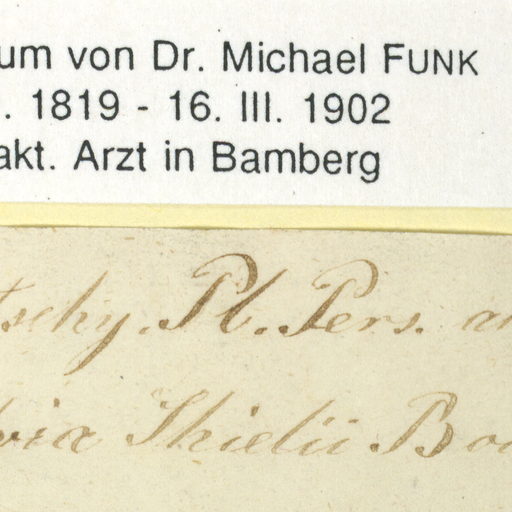 um von Dr. Michael FUNK
. 1819 - 16. III. 1902
akt. Arzt in Bamberg
tschy. Pl. Pers. au
via Thielii Bo